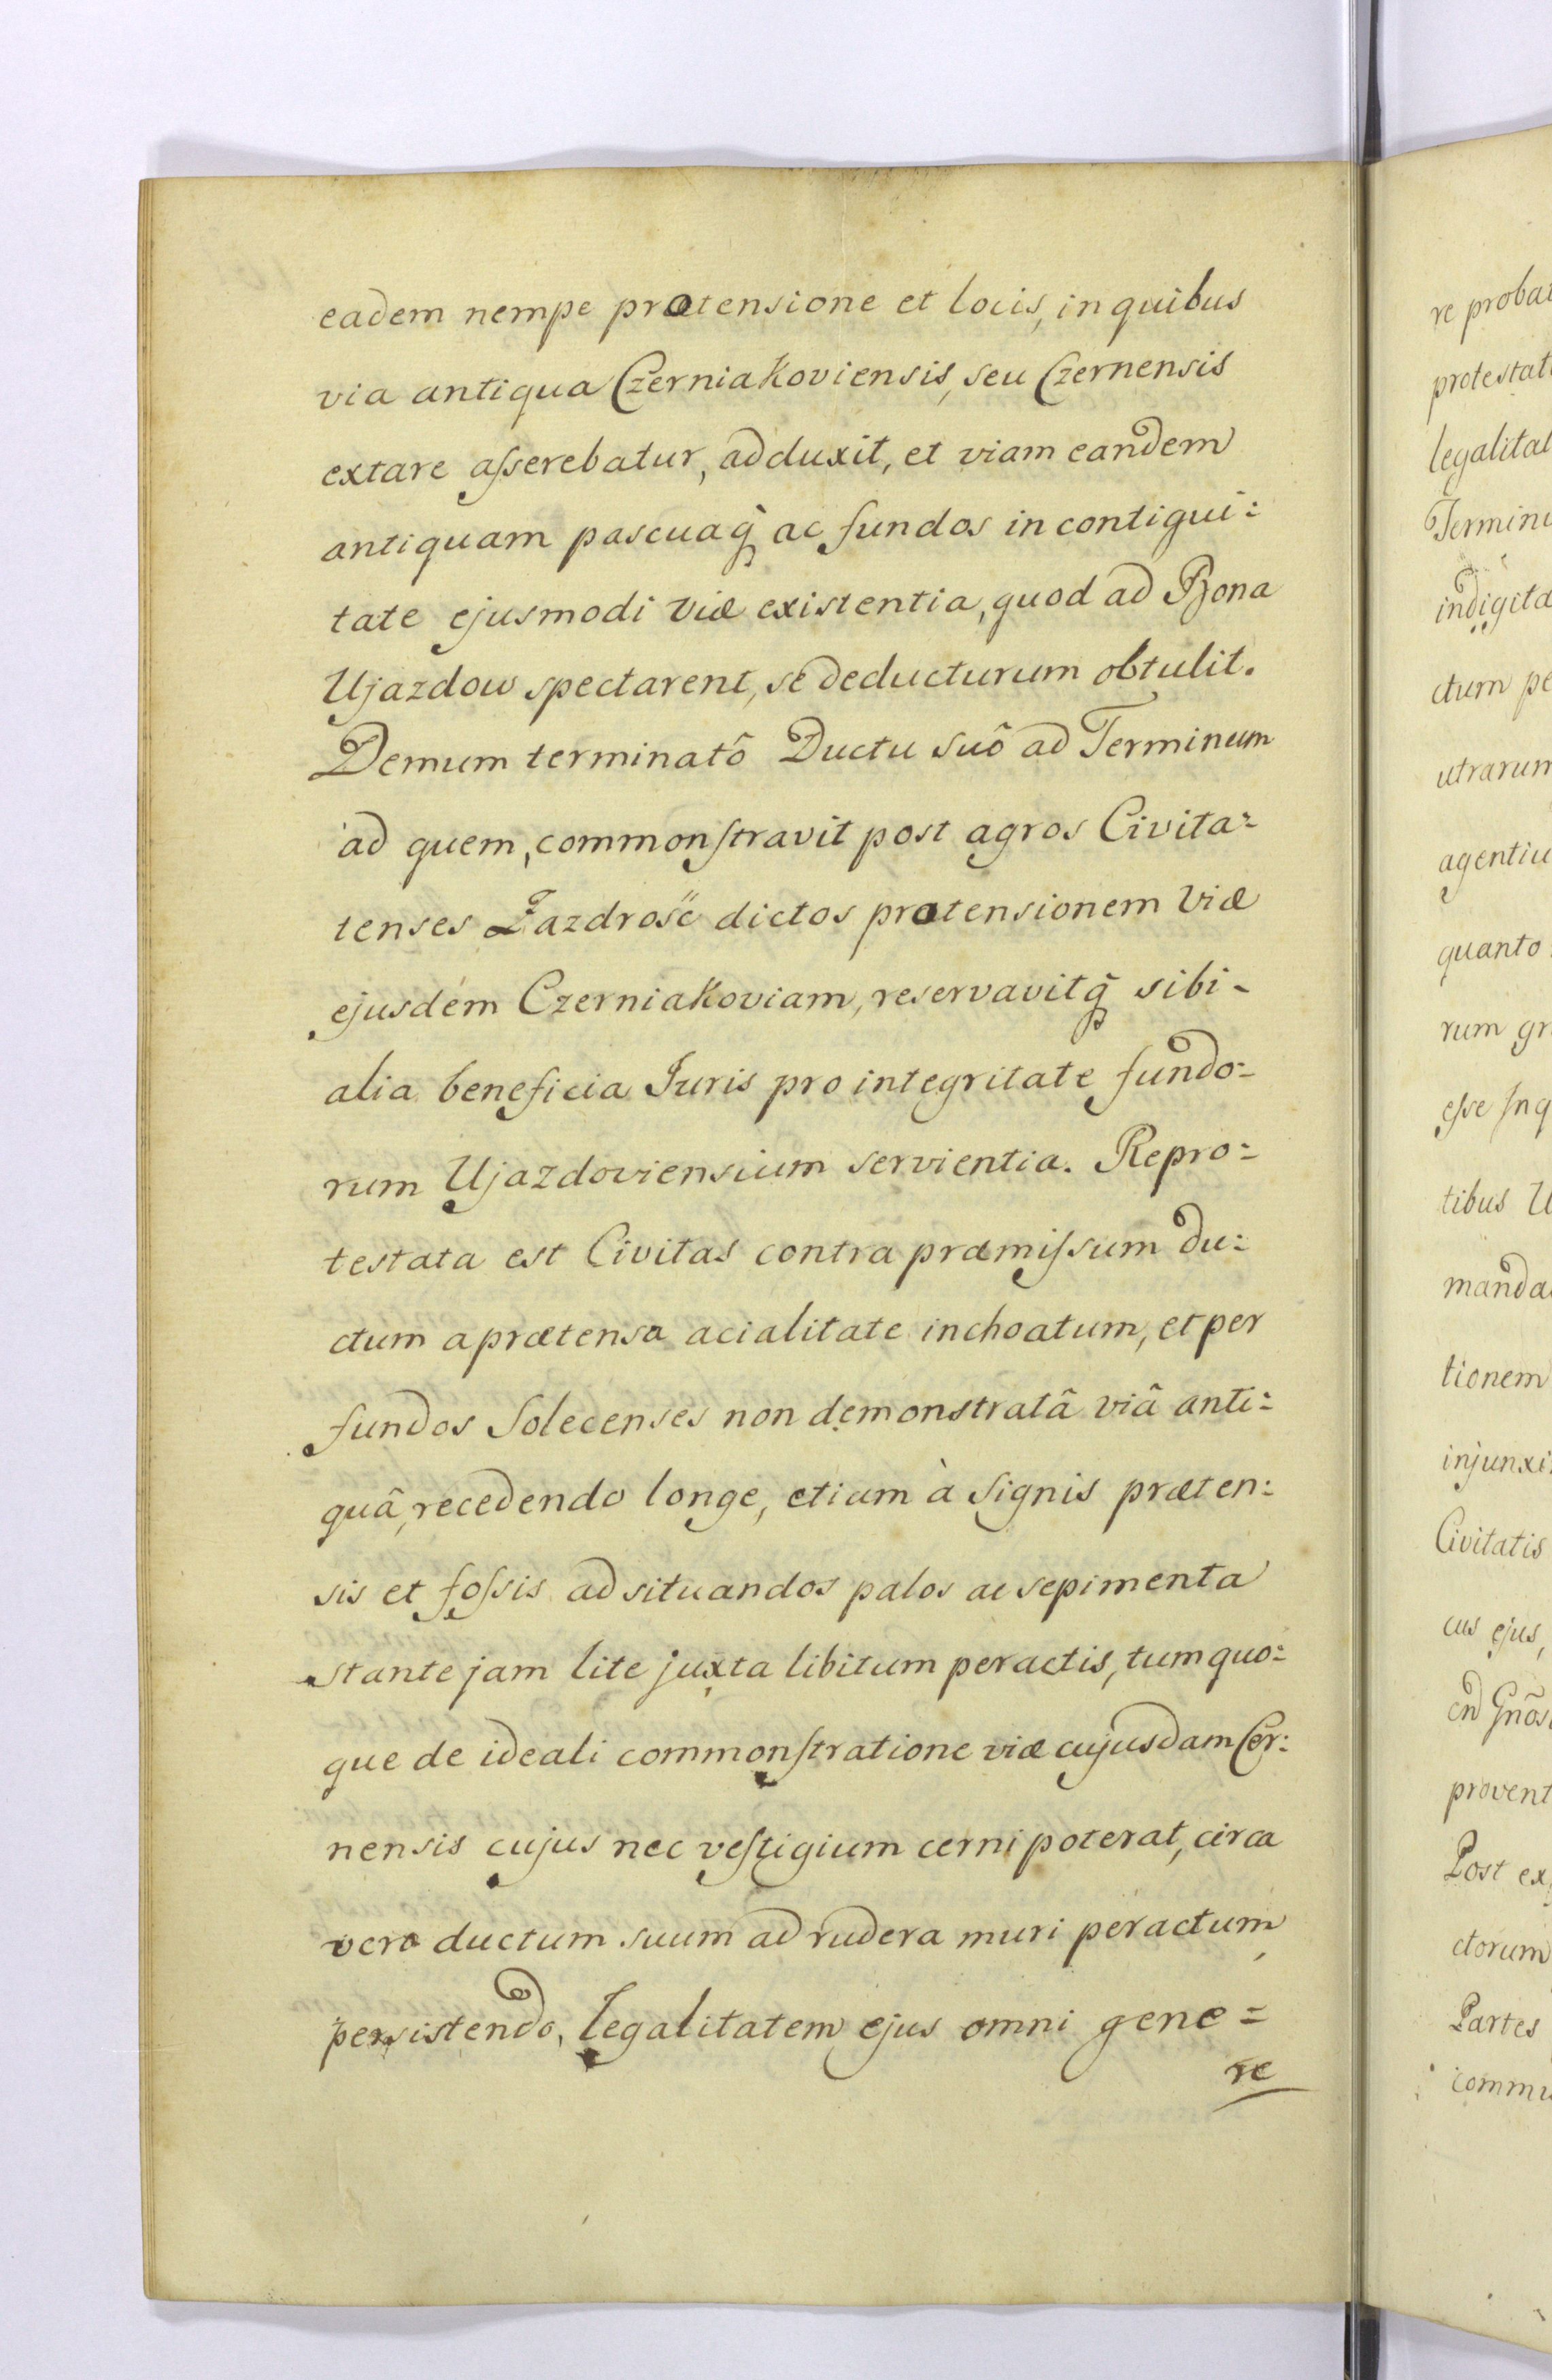 eadem nempe prætensione et locis, in quibus
via antiqua Czerniakoviensis, seu Czernensis
extare aſserebatur, adduxit, et viam eandem
antiquam pascuaq̀ ac fundos in contigui=
tate ejusmodi viæ existentia, quod ad Bona
Ujazdow spectarent, se deducturum obtulit.
Demum terminatô Ductu suô ad Terminum
ad quem, commonſtravit post agros Civita=
tenses Zazdrość dictos prætensionem viæ
ejusdem Czerniakoviam, reservavitq̀ sibi-
alia beneficia Juris pro integritate fundo=
rum Ujazdoviensium servientia. Repro=
testata est Civitas contra præmiſsum du=
ctum a prætensa acialitate inchoatum, et per
fundos Solecenses non demonstratâ viâ anti=
quâ, recedendo longe, etiam à signis præten=
sis et foſsis ad situandos palos ac sepimenta
stante jam lite juxta libitum peractis, tum quo=
que de ideali commonſtratione viæ cujusdam Cer=
nensis cujus nec veſtigium cerni poterat, circa
vero ductum suum ad rudera muri peractum
persistendo, legalitatem ejus omni gene=
re
re proba
protestat
legalitat
Termin
indigita
ctum pe
utrarum
agentiu
quanto
rum gr
eſse Inq
tibus U
manda
tionem
injunxi
Civitatis
cus ejus,
end Gnõs
provent
Post ex
ctorum
Partes
commu